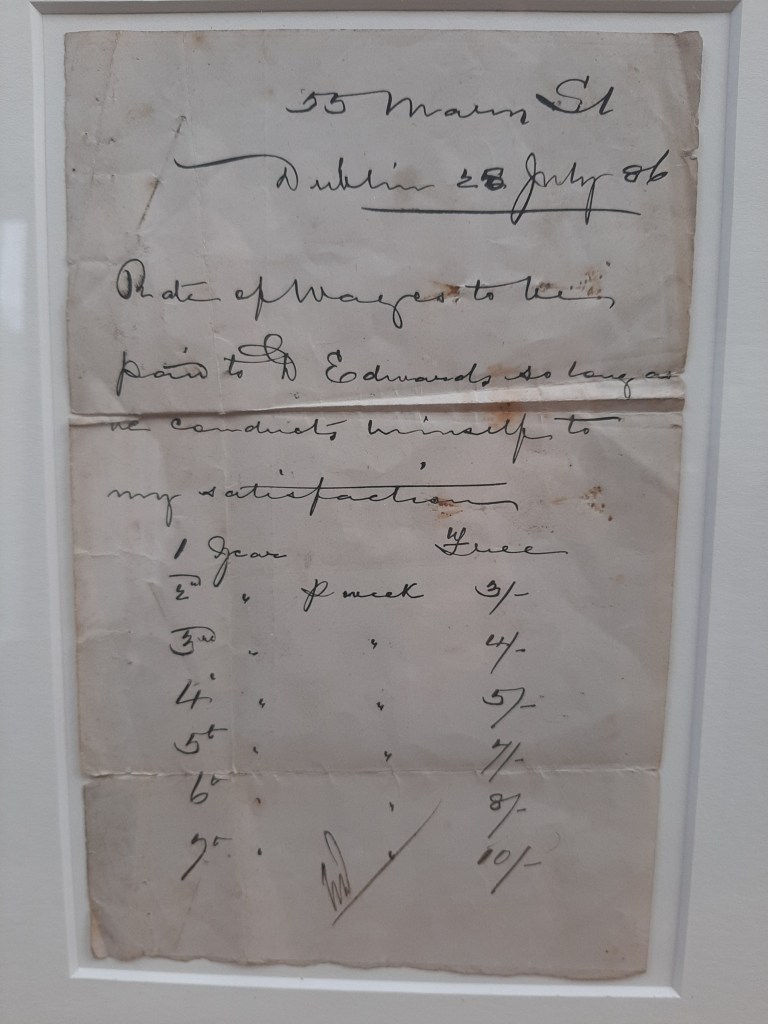 55 Mary St
Dublin 28 July 86
Rate of Wages to be
paid to GD Edwards so long as
he conducts himself to
my satisfaction
1 Year Free
2nd " P week 3/-
3rd " " 4/-
4th " " 5/-
5th " " 7/-
6th " " 8/-
7th " " 10/-